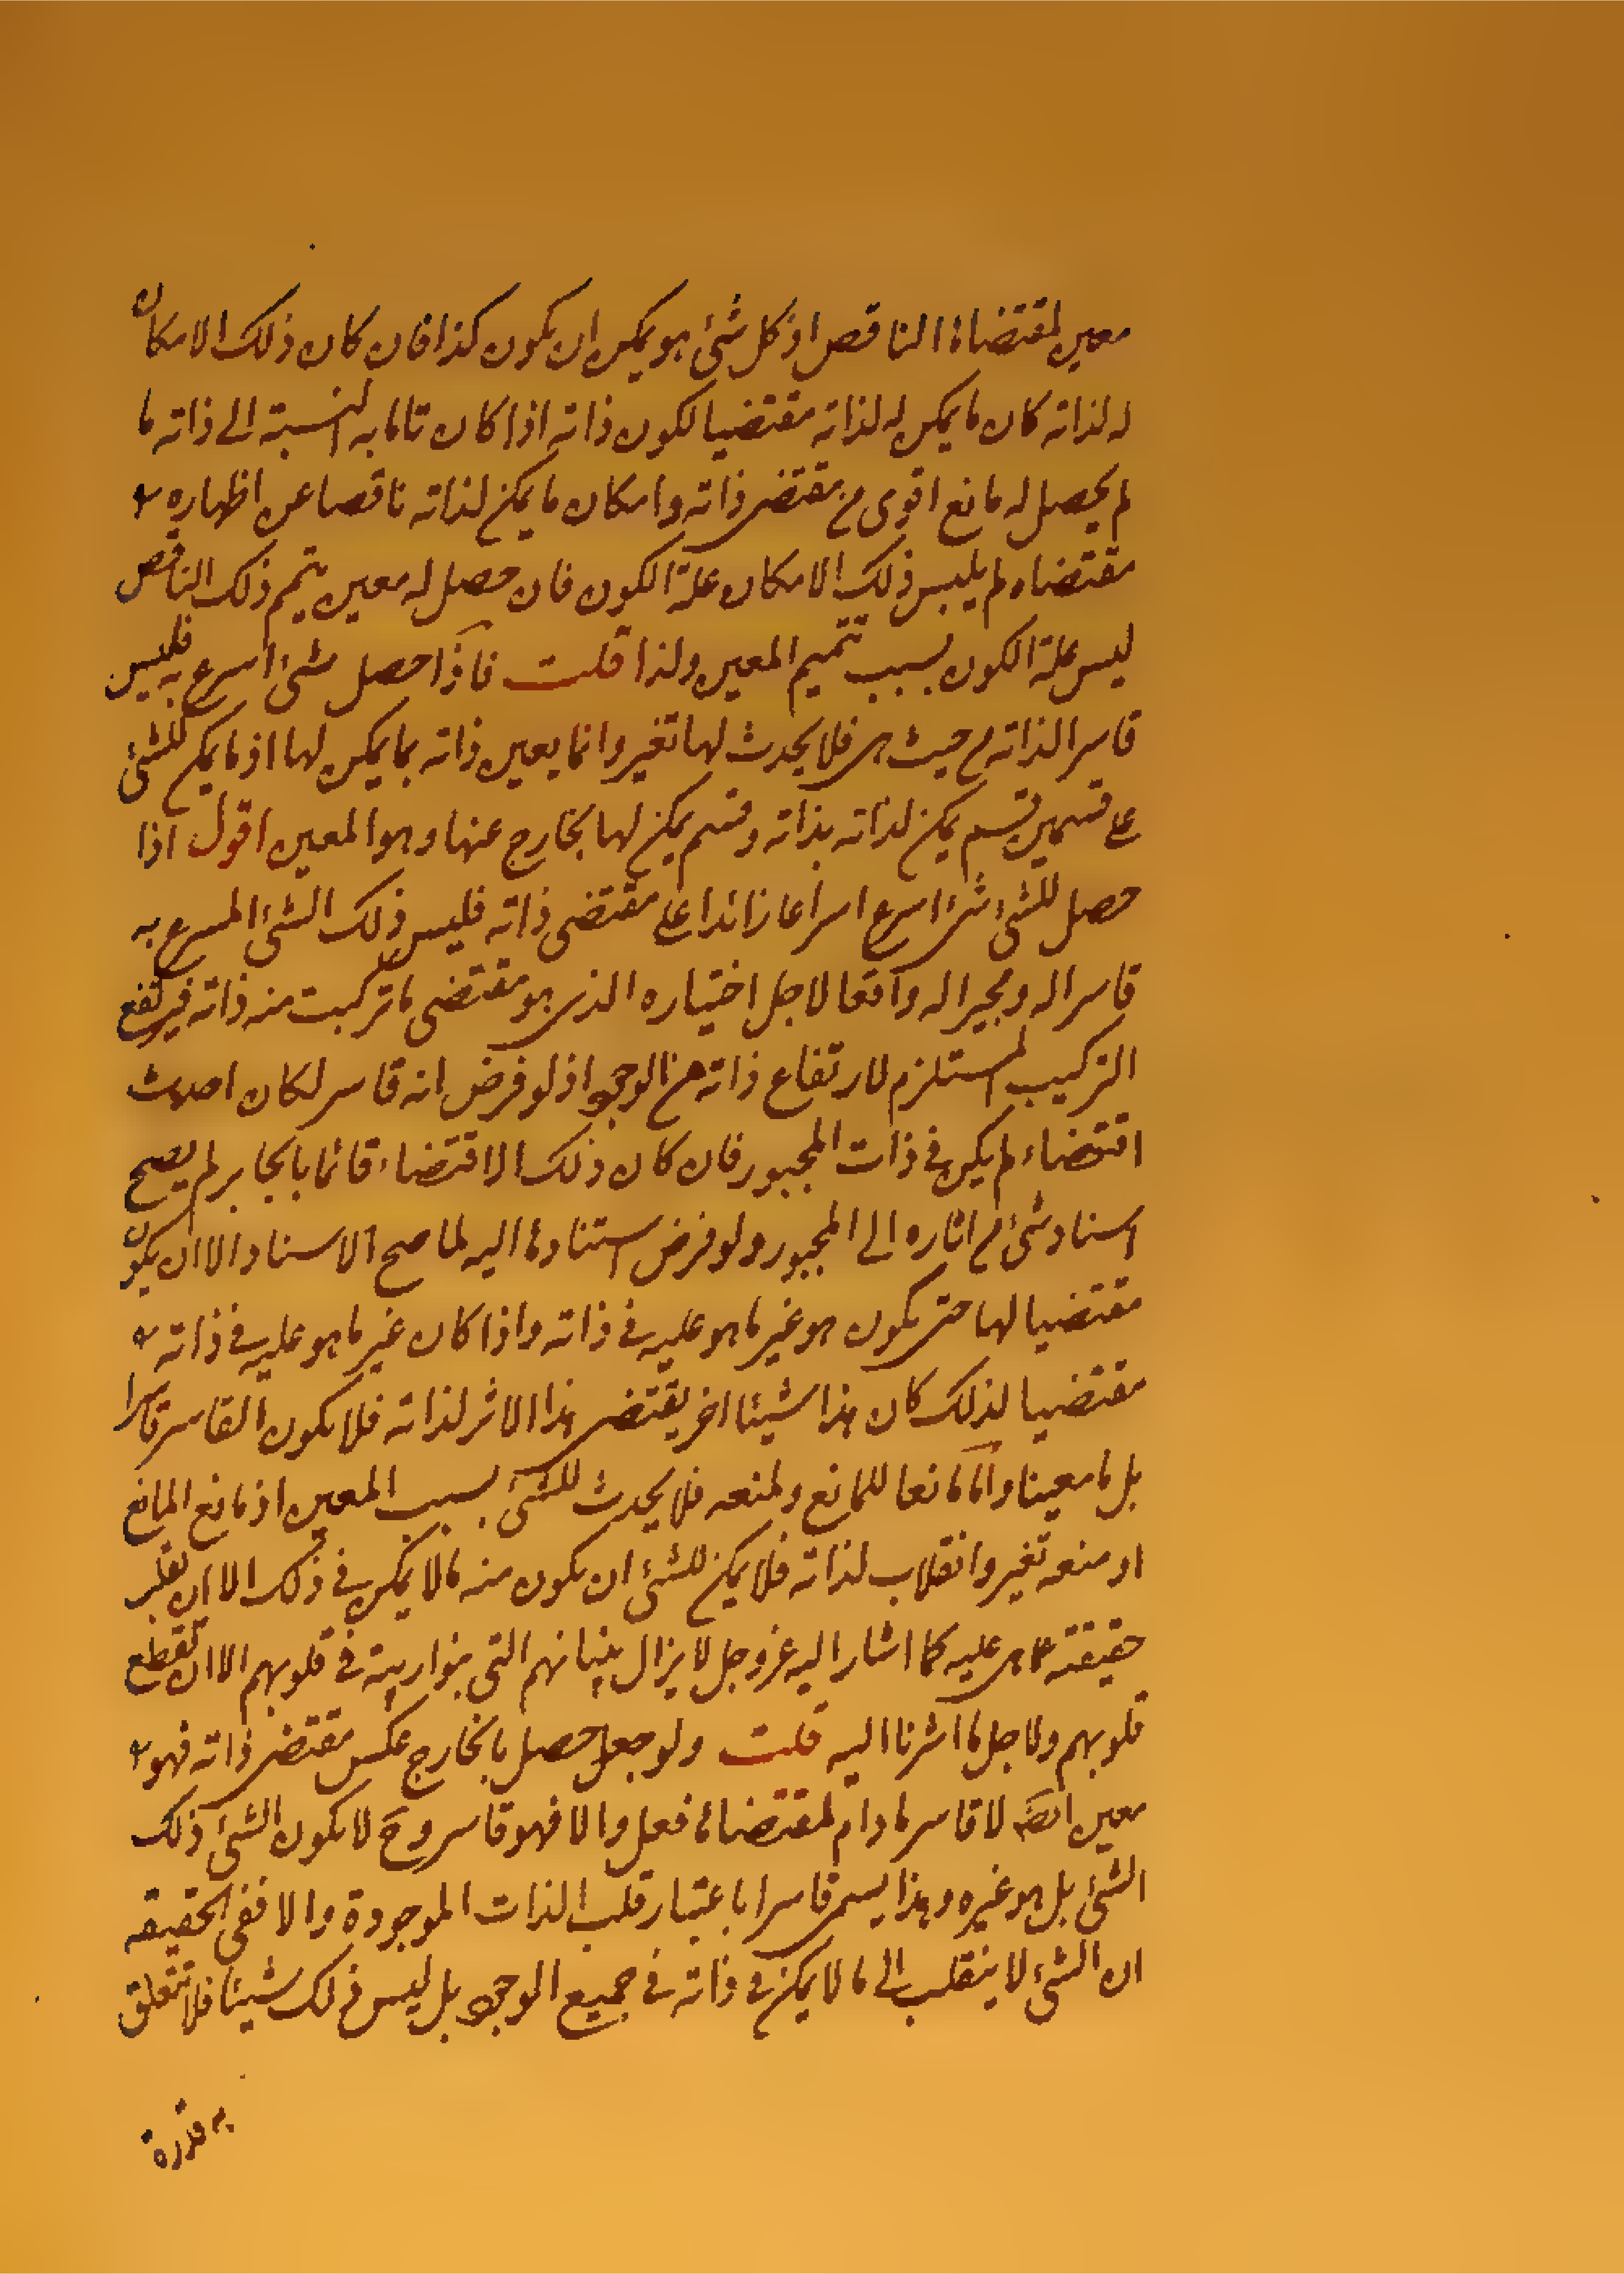 معين لمقتضاها الناقص اذ كل شئ هو يمكن ان يكون كذا فان كان ذلك الامكان
له لذاته كان ما يمكن له لذاته مقتضيا لكون ذاته اذا كان تاما به لنسبة الى ذاته ما
لم يحصل له مانع اقوى من مقتضى ذاته وامكان ما يمكن لذاته ناقصا عن اظهاره
مقتضاه لم يلبس ذلك الامكان علة الكون فان حصل له معين يتمم ذلك الناقص
ليس علة الكون بسبب تتميم المعين ولذا قلت فاذا حصل شئ اسرع به فليس
قاسرا لذاته من حيث هى فلا يحدث لها تغير وانما يعين ذاته بما يمكن لها اذ ما يمكن للشئ
على قسمين قسم يمكن لذاته بذاته وقسم يمكن لها بخارج عنها وهو المعين اقول اذا
حصل للشئ شئ اسرع اسراعا زائدا على مقتضى ذاته فليس ذلك الشئ المسرع به
قاسرا له ومجبرا له واقعا لاجل اختياره الذى هو مقتضى ما تركبت منه ذاته فيرتفع
التركيب المستلزم لارتفاع ذاته من الوجود اذ لو فرض انه قاسر لكان احدث
اقتضاء لم يكن فى ذات المجبور فان كان ذلك الاقتضاء قائما بالجابر لم يصح
اسناد شئ من اثاره الى المجبور ولو فرض استنادها اليه لما صح الاسناد الا ان يكون
مقتضيا لها حتى يكون هو غير ما هو عليه فى ذاته واذا كان غير ما هو عليه فى ذاته
مقتضيا لذلك كان هذا شيئا اخر يقتضى هذا الاثر لذاته فلا يكون القاسر قاسرا
بل ما معينا واما مانعا للمانع ولمنعه فلا يحدث للشئ بسبب المعين اذ مانع المانع
او منعه تغير وانقلاب لذاته فلا يمكن للشئ ان يكون منه ما لا يمكن فى ذلك الا ان تقلب
حقيقته عما هى عليه كما اشار اليه عز وجل لا يزال بنيانهم التى بنوا ريبة فى قلوبهم الا ان تقطع
قلوبهم ولاجل ما اشرنا اليه قلت ولو جعل حصل بالخارج عكس مقتضى ذاته فهو
معين ايضا لا قاسر ما دام لمقتضاها فعل والا فهو قاسر وح لا يكون الشئ ذلك
الشئ بل هو غيره وهذا يسمى قاسرا باعتبار قلب الذات الموجودة والا ففى الحقيقه
ان الشئ لا ينقلب الى ما لا يمكن فى ذاته فى جميع الوجود بل ليس ذلك شيئا فلا تتعلق
به قدرة